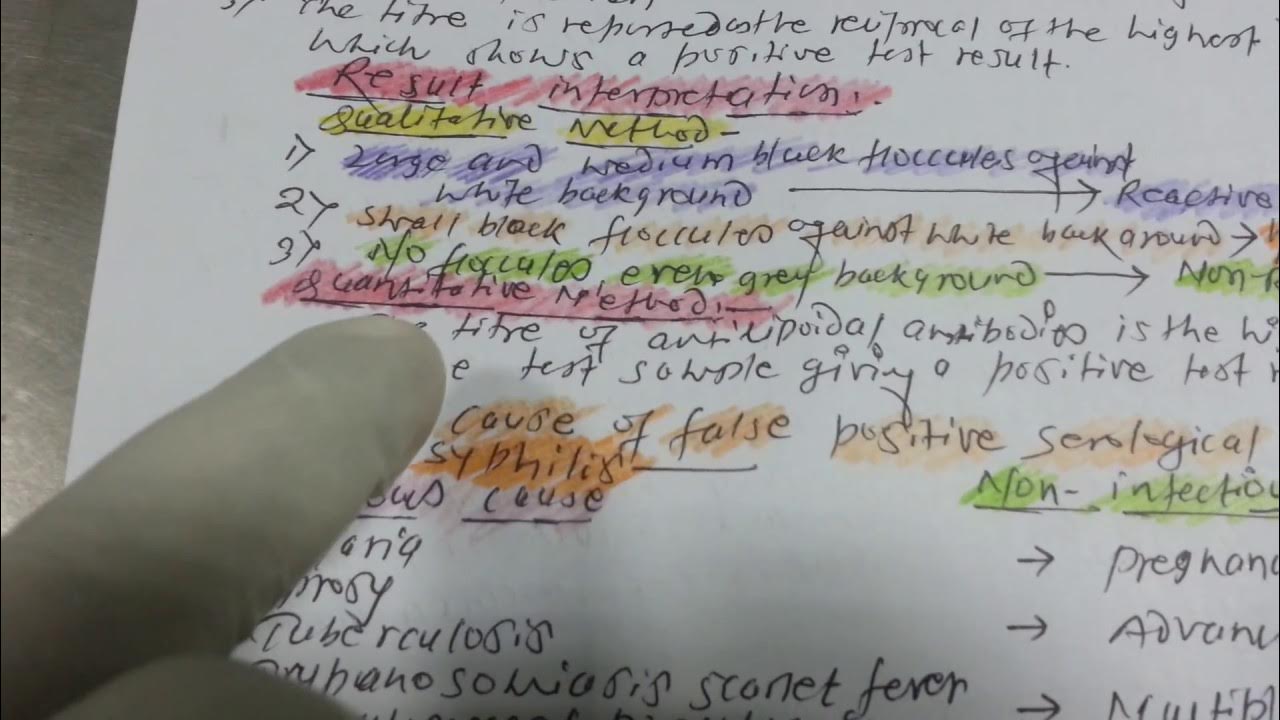 3) The titre is repursed as the reciprocal of the highest
which shows a positive test result.
Result interpretation:
Qualitative Method-
1) Large and medium black floccules against
white background → Reactive
2) Small black floccules against white background →
3) No floccules, even grey background → Non-R
Quantitative Method:-
titre of antilipoidal antibodies is the hi
e test sample giving a positive test r
Cause of false positive serological
syphilis
ous cause Non-infectiou
aria → pregnanc
prosy
Tuberculosis → Advanc
rypanosomiasis scarlet fever
→ Multipl